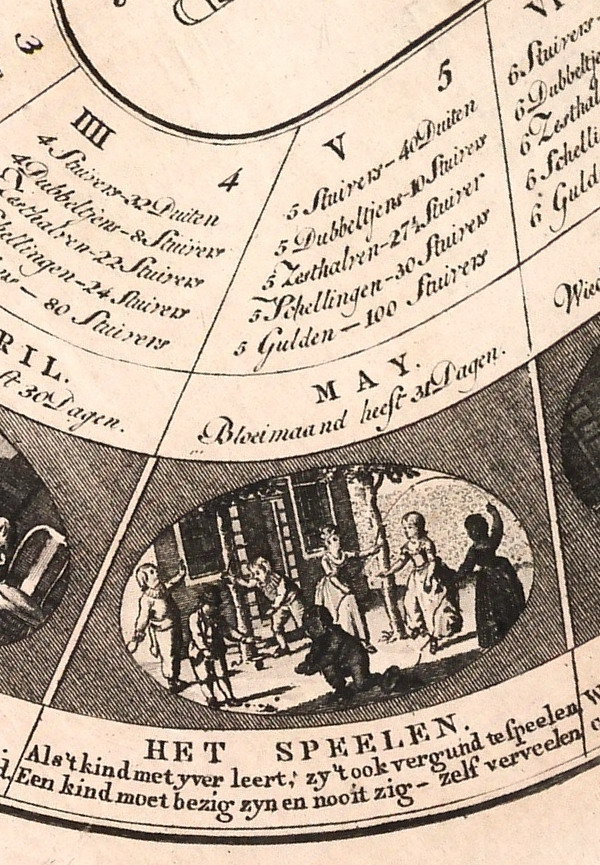 3
IIII 4
4 Stuivers - 32 Duiten
4 Dubbeltjens - 8 Stuivers
Zesthalven - 22 Stuivers
Schellingen - 24 Stuivers
80 Stuivers
RIL.
ft 30 Dagen.
V 5
5 Stuivers - 40 Duiten
5 Dubbeltjens - 10 Stuivers
5 Zesthalven - 27½ Stuiver
5 Schellingen - 30 Stuivers
5 Gulden - 100 Stuivers
MAY.
Bloeimaand heeft 31 Dagen.
VI
6 Stuivers
6 Dubbeltje
6 Zesthal
6 Schelli
6 Guld
Wied
HET SPEELEN.
Als 't kind met yver leert; zy 't ook vergund te speelen,
Een kind moet bezig zyn en nooit zig - zelf verveelen.